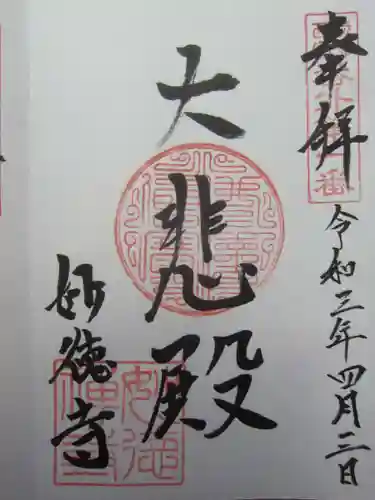 奉拝
令和三年四月三日
大悲殿
妙徳寺